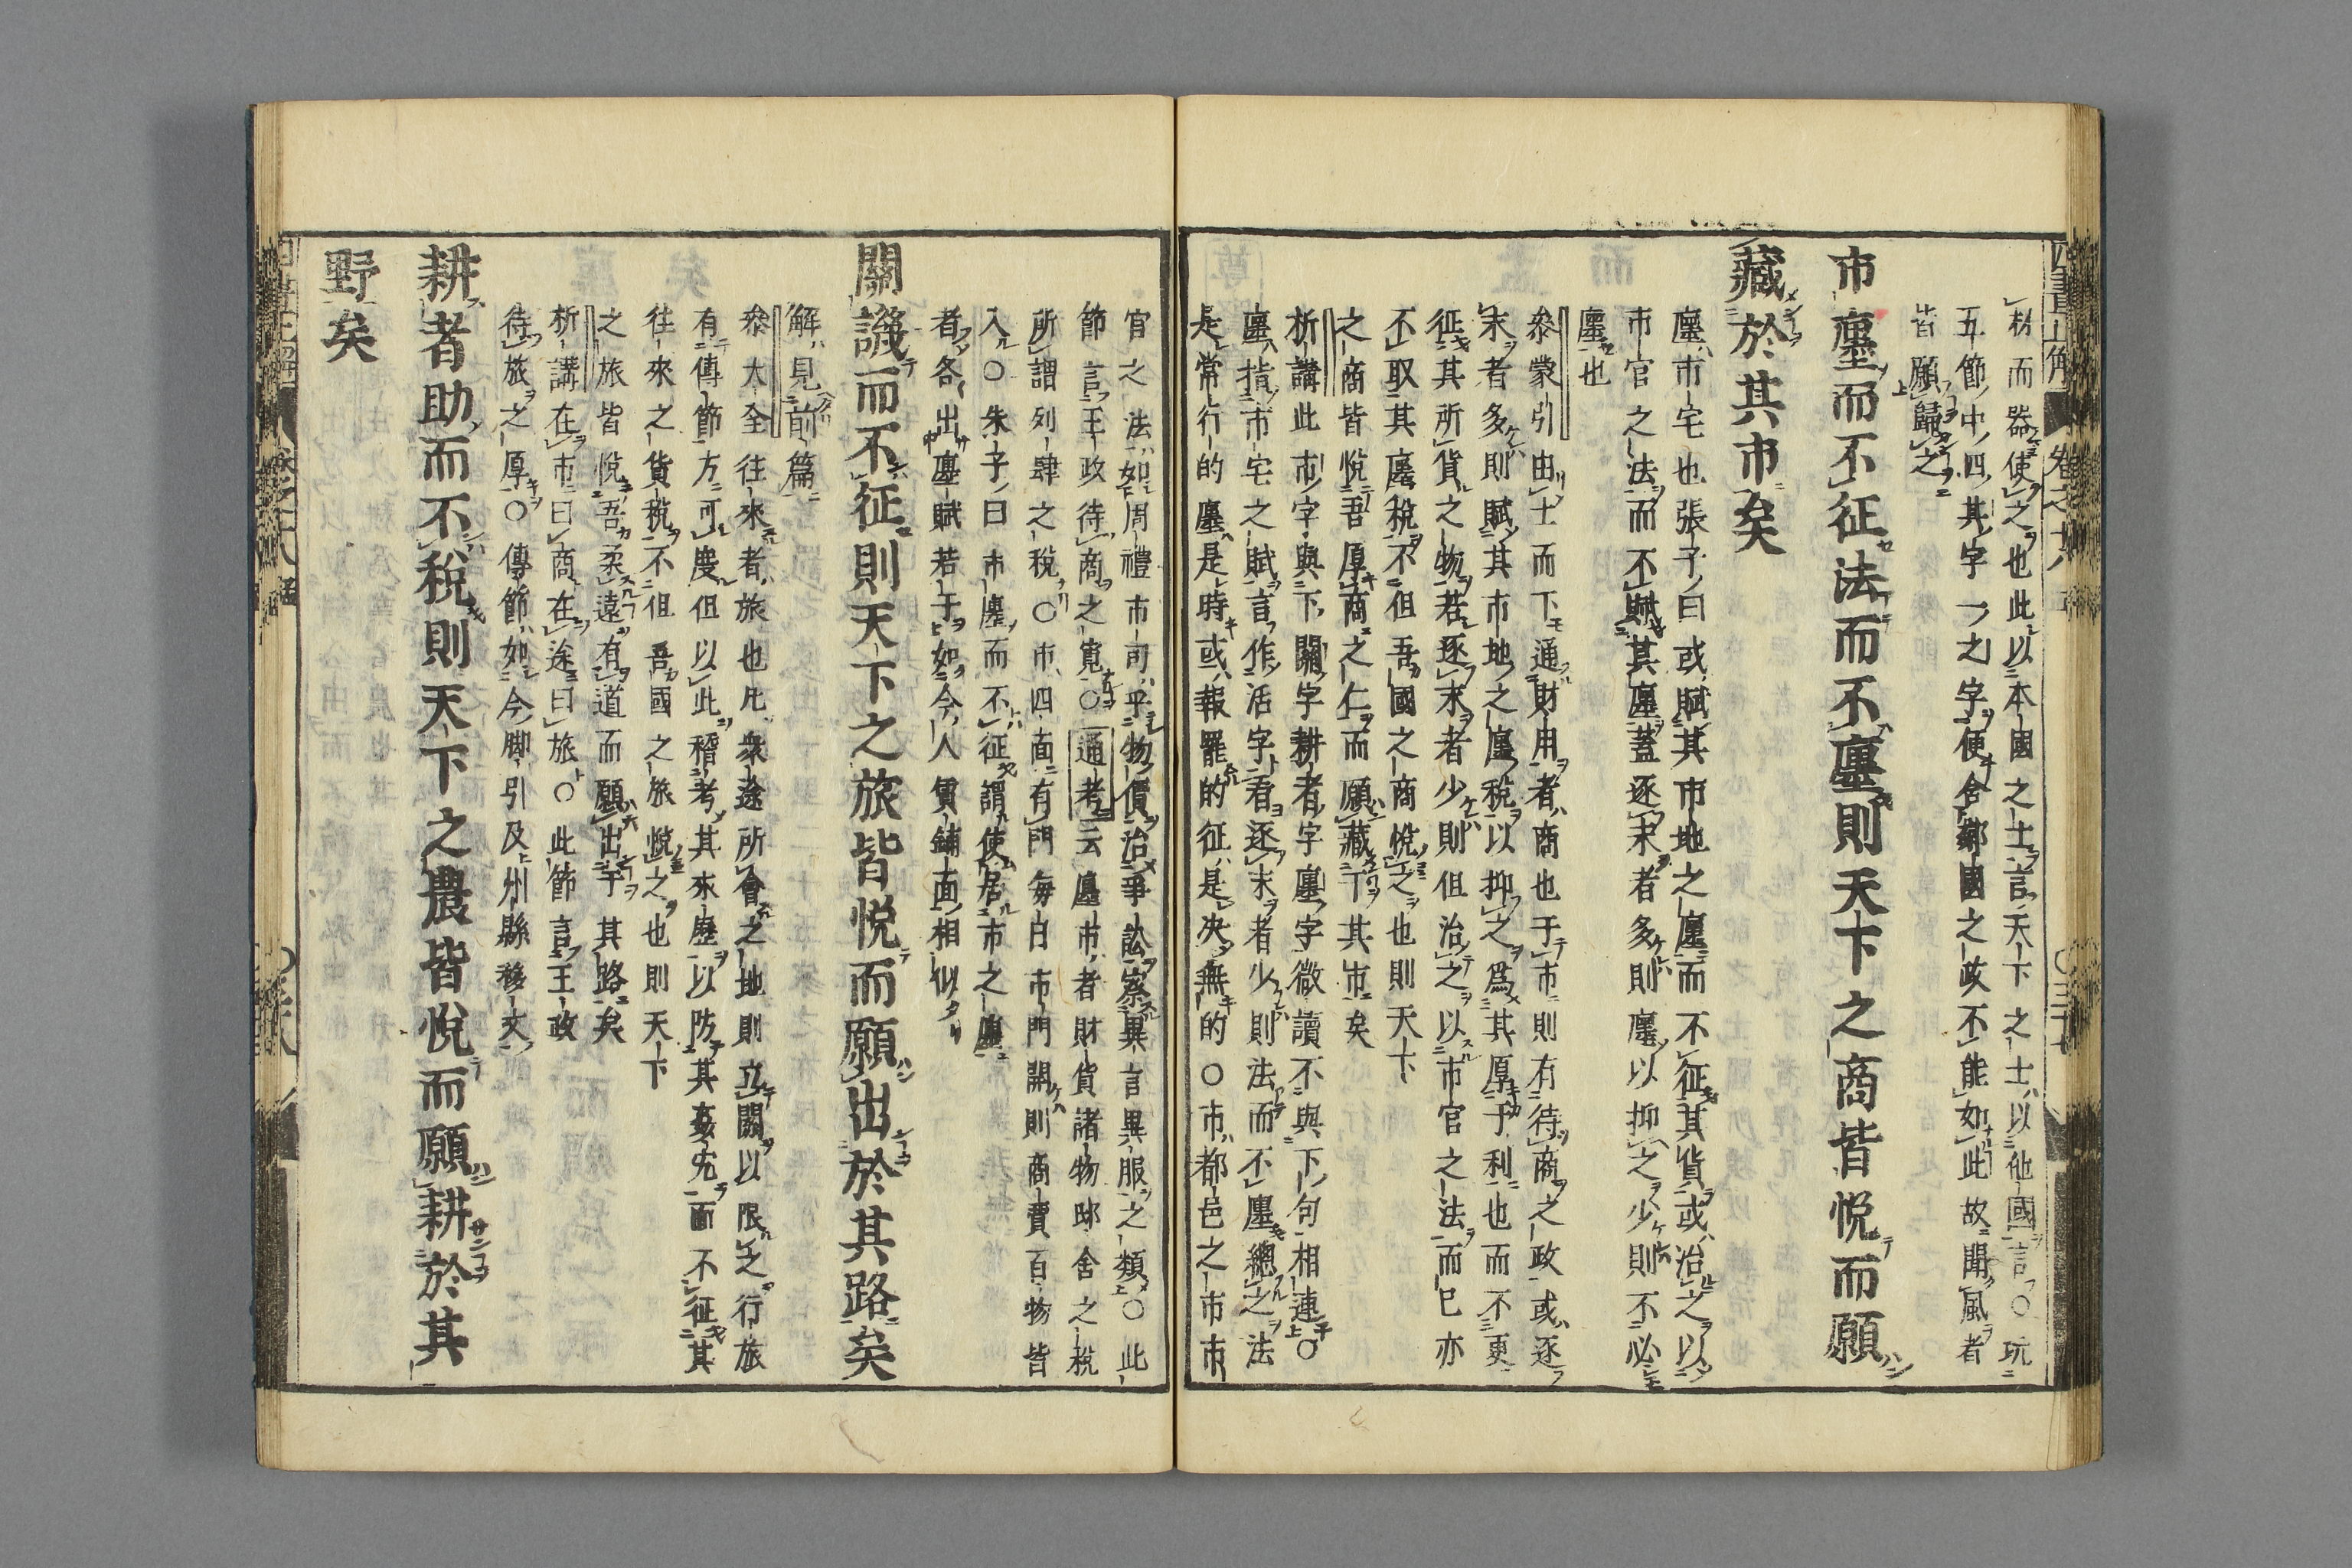 材而器使之也此以本國之士言天下之士以他國言〇玩
五節中四其字一之字便舍鄰國之政不能如此故聞風者
皆願歸之
市廛而不征法而不廛則天下之商皆悅而願
藏於其市矣
廛市宅也張子曰或賦其市地之廛而不征其貨或治之以
市官之法而不賦其廛蓋逐末者多則廛以抑之少則不必
廛也
叅蒙引由士而下通財用者商也于市則有待商之政或逐
末者多則賦其市地之廛稅以抑之爲其厚于利也而不更
征其所貨之物若逐末者少則但治之以市官之法而已亦
不取其廛稅不但吾國之商悅之也則天下
之商皆悅吾厚商之仁而願藏于其市矣
析講此市字與下關字耕者字廛字微讀不與下句相連〇
廛指市宅之賦言作活字看逐末者少則法而不廛總之法
是常行的廛是時或報罷的征是决無的〇市都邑之市市
官之法如周禮市司平物價治爭訟察異言異服之類〇此
節言王政待商之寬〇通考云廛市者財貨諸物邸舍之稅
所謂列肆之稅〇市四面有門每日市門開則商賈百物皆
入〇朱子曰市廛而不征謂使居市之廛
者各出廛賦若干如今人賃鋪面相似
關譏而不征則天下之旅皆悅而願出於其路矣
解見前篇
叅大全往來者旅也凡衆途所會之地則立關以限之行旅
有傳節方可度但以此稽考其來歷以防其姦宄而不征其
往來之貨稅不但吾國之旅悅之也則天下
之旅皆悅吾柔遠有道而願出于其路矣
析講在市曰商在途曰旅〇此節言王政
待旅之厚〇傳節如今脚引及州縣移文
耕者助而不稅則天下之農皆悅而願耕於其
野矣